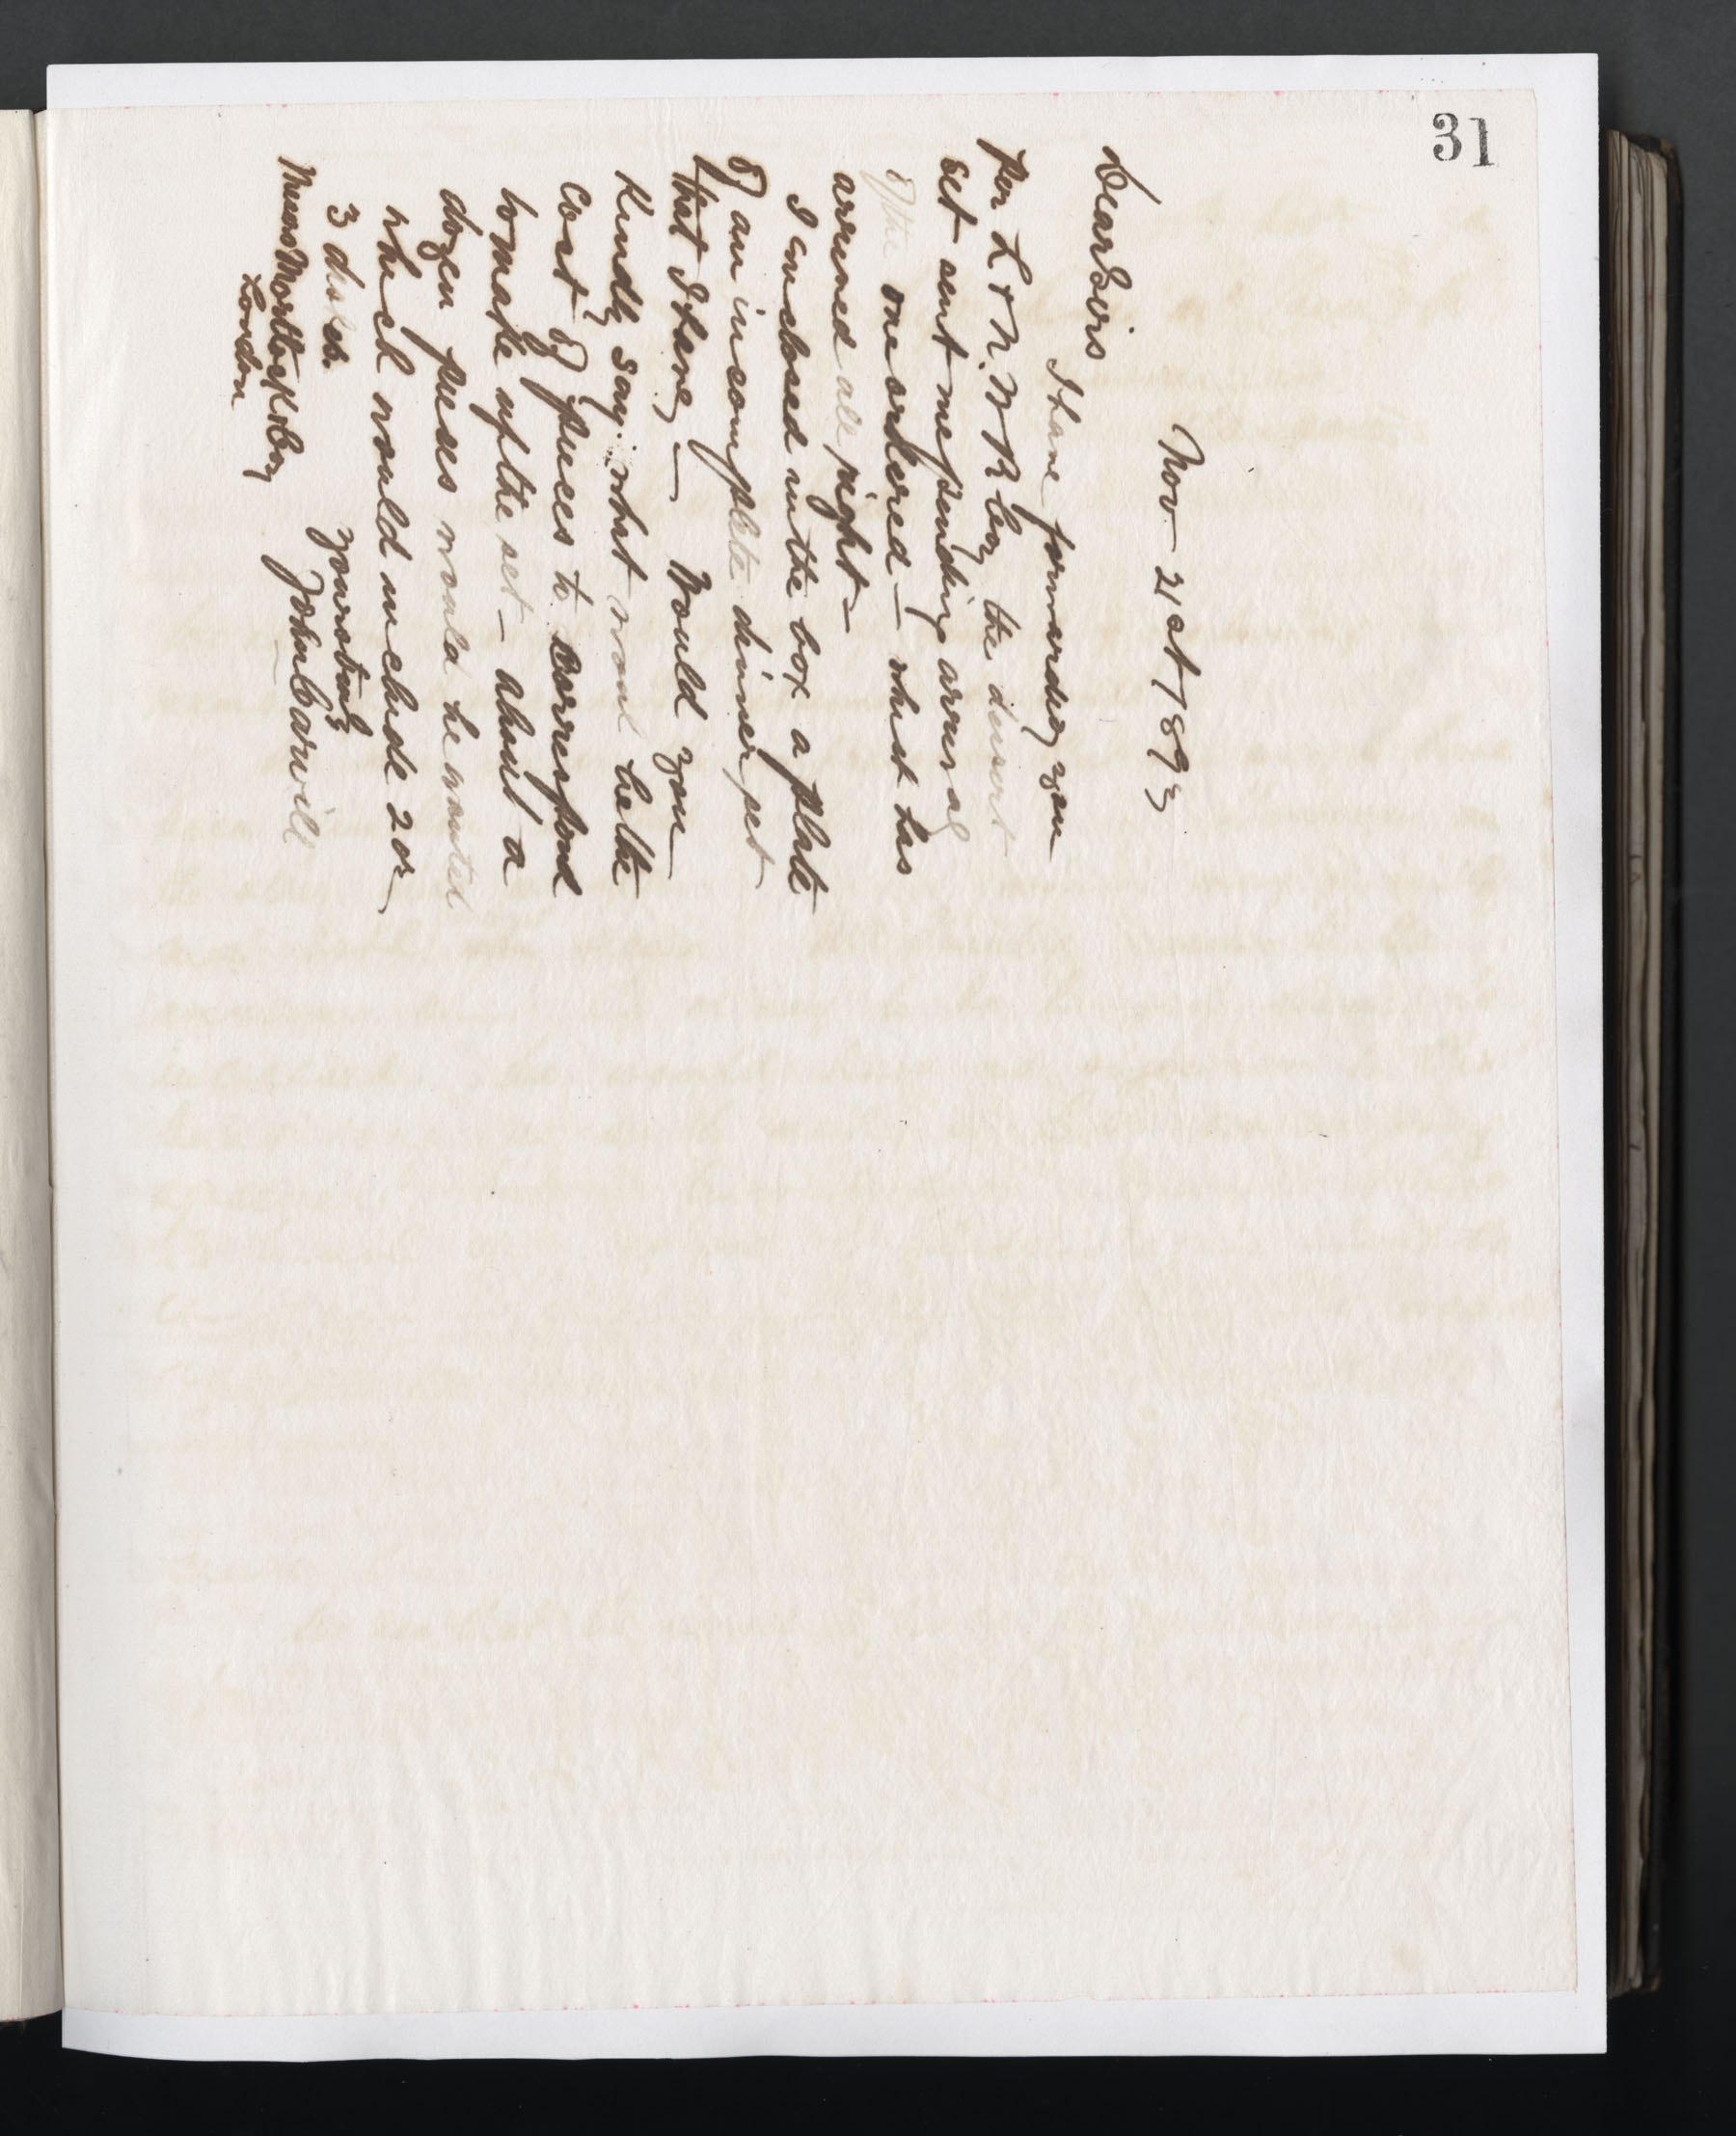 31
Nov 21st 1893
Dear Sirs
I have forwarded you
per L & N. W R Coy the desert
set sent me pending arrival
of the one ordered — which has
arrived all right —
I enclosed in the box a plate
of an incomplete dinner set
that I have — Would you
Kindly say what would be the
cost of pieces to correspond
to make up the set — about a
dozen pieces would be wanted
which would include 2 or
3 dishes.
Yours truly
John Carvill
Messrs Mortlock & Coy
London